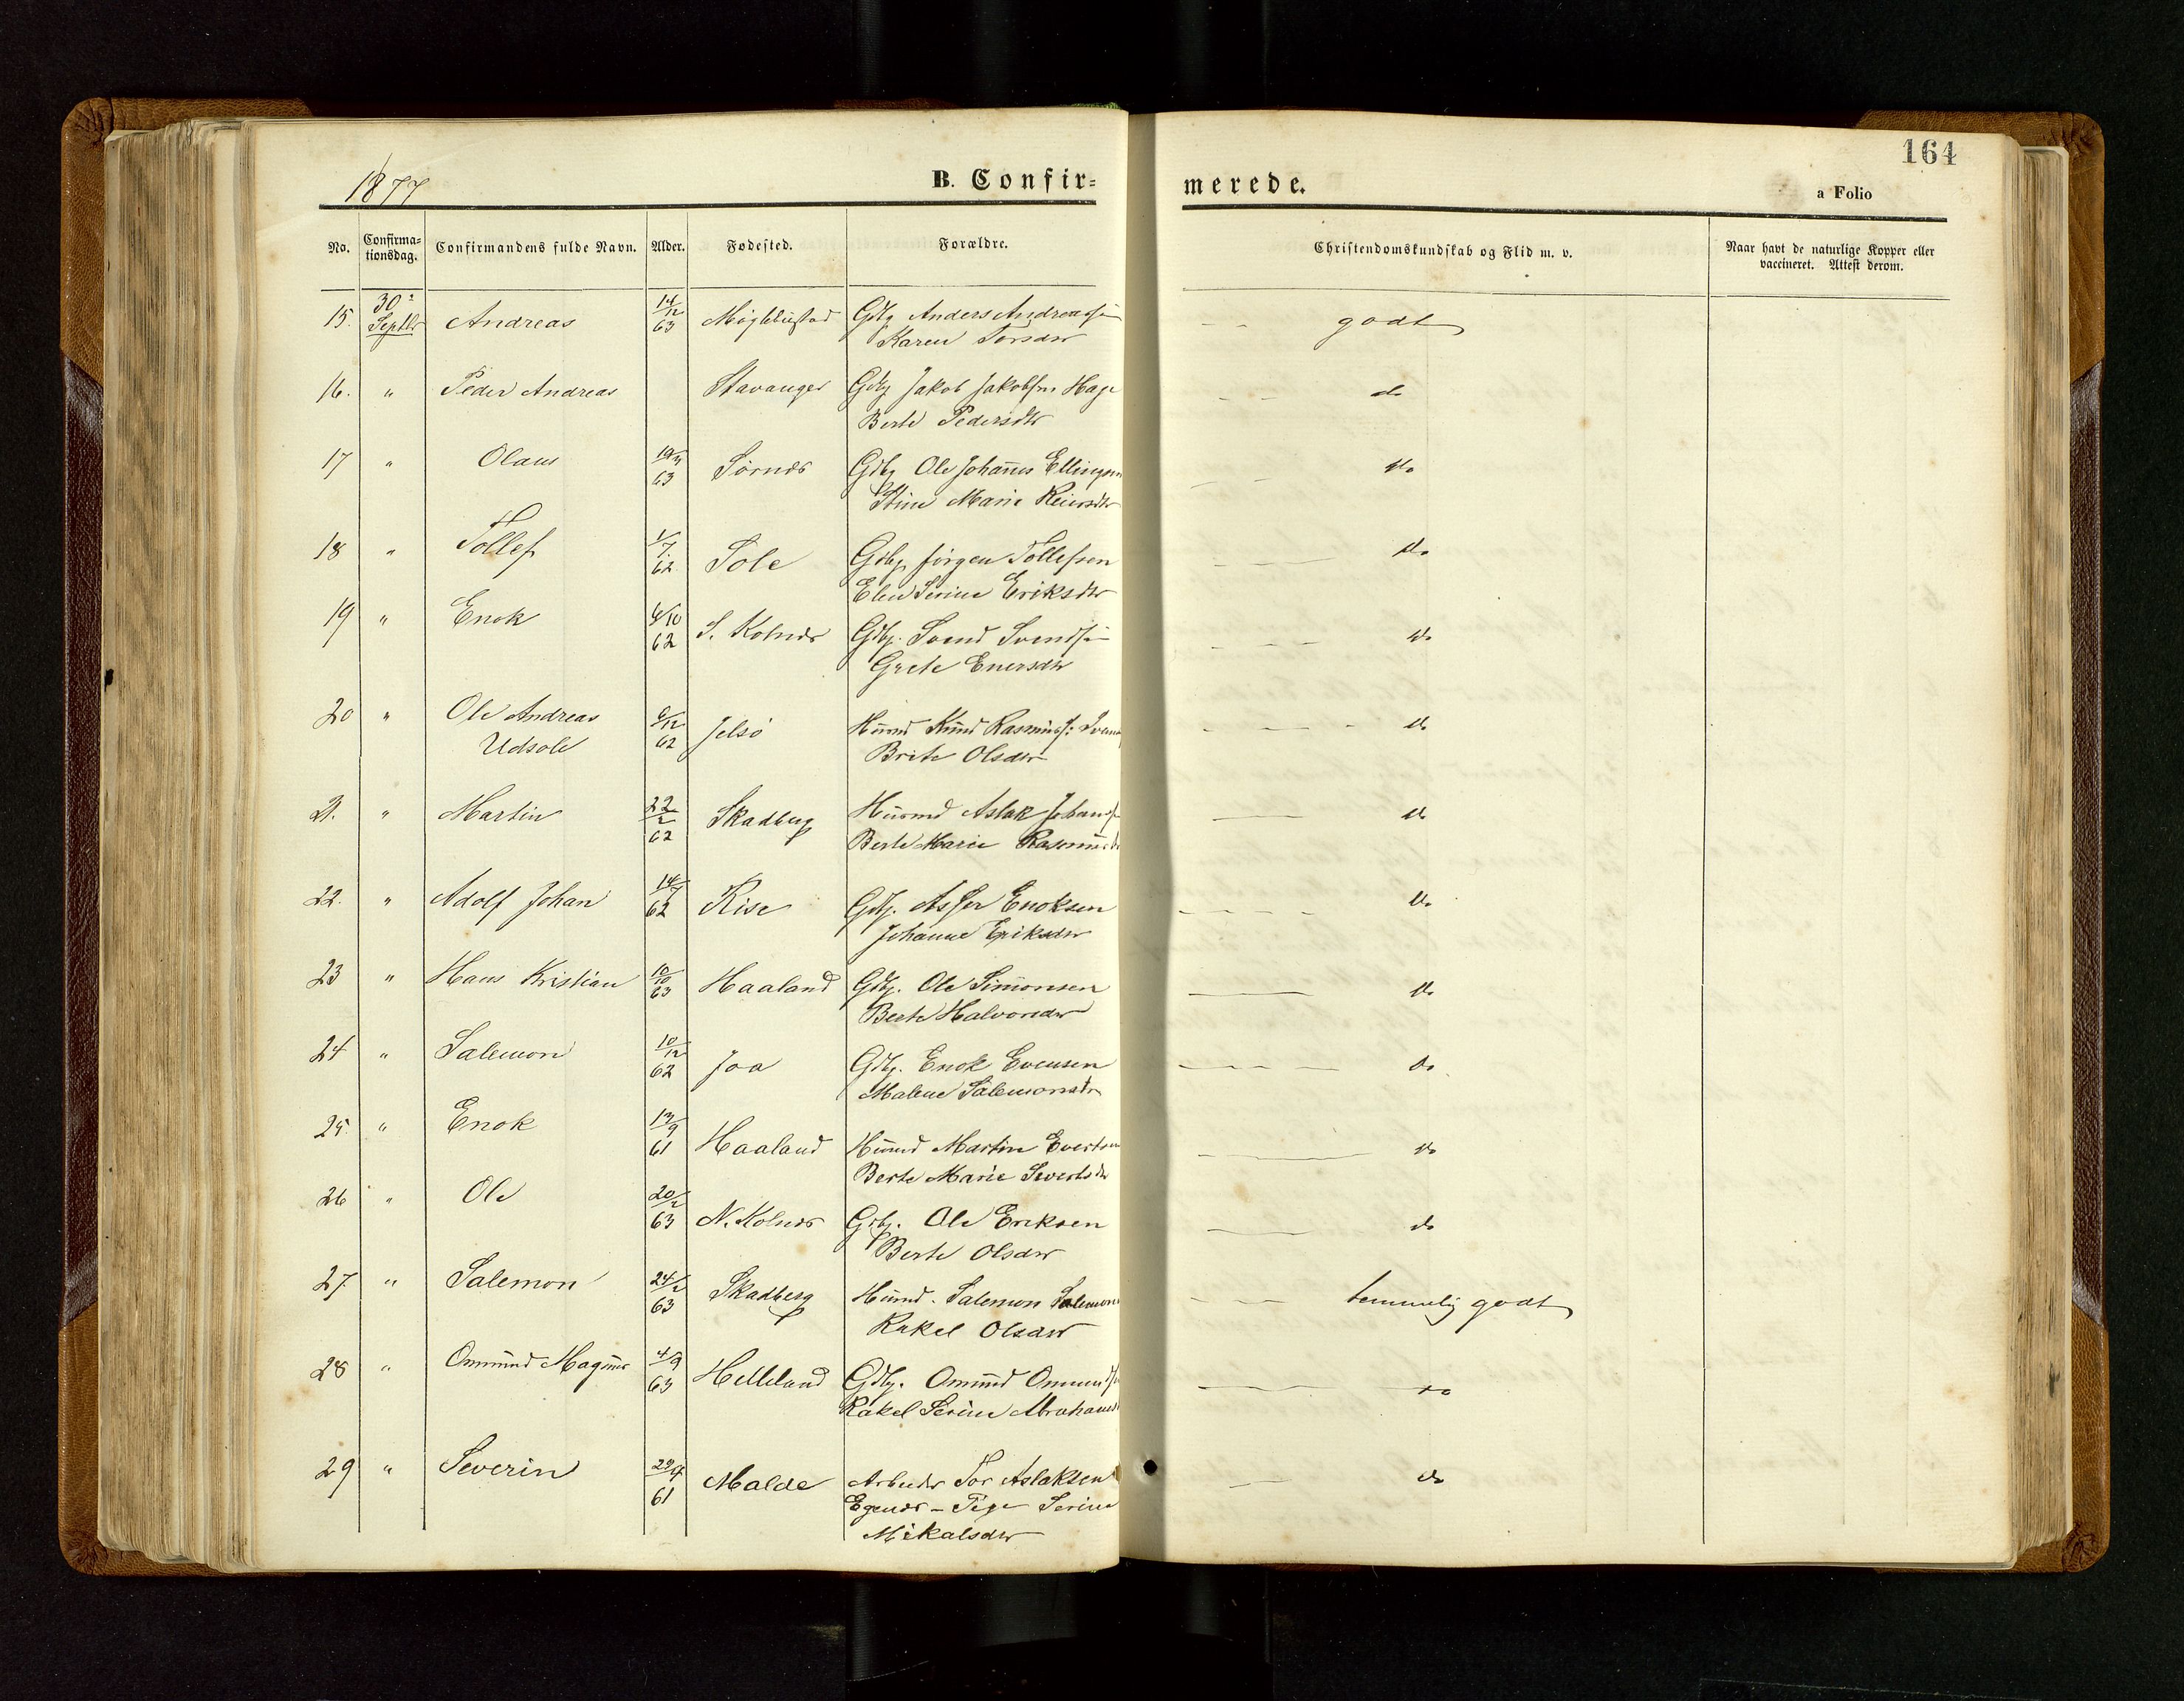 164
1877
B. Confir=
merede.
a Folio
No.
Confirma=
tionsdag.
Confirmandens fulde Navn.
Alder.
Fødested.
Forældre.
Christendomskundskab og Flid m. v.
Naar havt de naturlige Kopper eller
vaccineret. Attest derom.
15. 30 Septbr Andreas 14/12 63 Gdbg Anders Andreas
Karen godt
16. " Peder Andreas Stavanger Gdbg Jakob Jakobsen Hage do
Berte Pedersdtr
17 " Olaus 63 Sørnes Gdbg Ole Johannes Ellingsen do
Stine Marie Reiersdtr
18 " Tollef 1/7 62 Sole Gdbg. Jörgen Tollefsen do
Elen Serine Eriksdtr
19 " Enok 4/10 62 S. Kolnes Gdbg. Svend Svends do
Grete Enersdtr
20 " Ole Andreas 6/12 62 Jelsö Huusmd Knud Rasmus: do
Udsole Brite Olsdtr
21. " Martin 22/2 62 Skadberg Huusmd Aslak Johans do
Berte Marie Rasmus
22. " Adolf Johan 14/7 62 Rise Gdbg. Asser Enoksen do
Johanne Eriksdtr
23 " Hans Kristian 10/10 63 Haaland Gdbg. Ole Simonsen do
Berte Halvorsdtr
24 " Salemon 10/12 62 Joa Gdbg. Enok Evensen do
Malene Salemonsdtr
25. " Enok 13/9 61 Haaland Huusmd Martin Evertsen do
Berte Marie Sivertsdtr
26 " Ole 20/2 63 N. Kolnes Gdbg. Ole Eriksen do
Berte Olsdtr
27. " Salemon 24/2 63 Skadberg Huusmd. Salemon Salemons temmelig godt
Rakel Olsdtr
28 " Ommund Magnus 4/9 63 Helleland Gdbg. Omund Omunds do
Rakel Serine Abrahams
29 " Severin 29/4 61 Malde Arbeider Tor Aslaksen do
Egenes - Pige Serine
Mikalsdtr